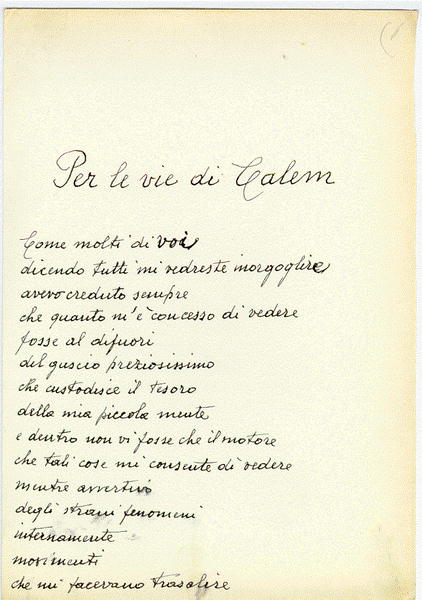 Per le vie di Calem
Come molti di voi
dicendo tutti mi vedreste inorgoglire
avevo creduto sempre
che quanto m'è concesso di vedere
fosse al difuori
del guscio preziosissimo
che custodisce il tesoro
della mia piccola mente
e dentro non vi fosse che il motore
che tali cose mi consente di vedere
mentre avvertivo
degli strani fenomeni
internamente
movimenti
che mi facevano trasalire